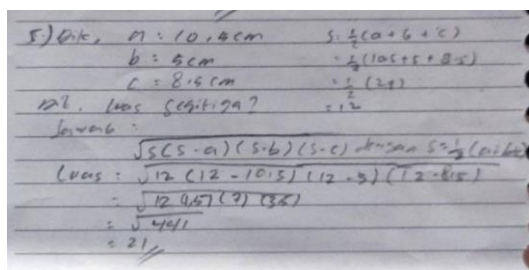 5.) Dik, a : 10,5 cm S : 1/2 (a + b + c)
b : 5 cm = 1/2 (10,5 + 5 + 8,5)
c = 8,5 cm = 1/2 (24)
Dit. Luas segitiga? = 12
Jawab :
√S(S-a)(S-b)(S-c) dengan S=1/2(a+b+c)
Luas : √12 (12 - 10,5) (12 - 5) (12 - 8,5)
= √12 (1,5) (7) (3,5)
= √441
= 21